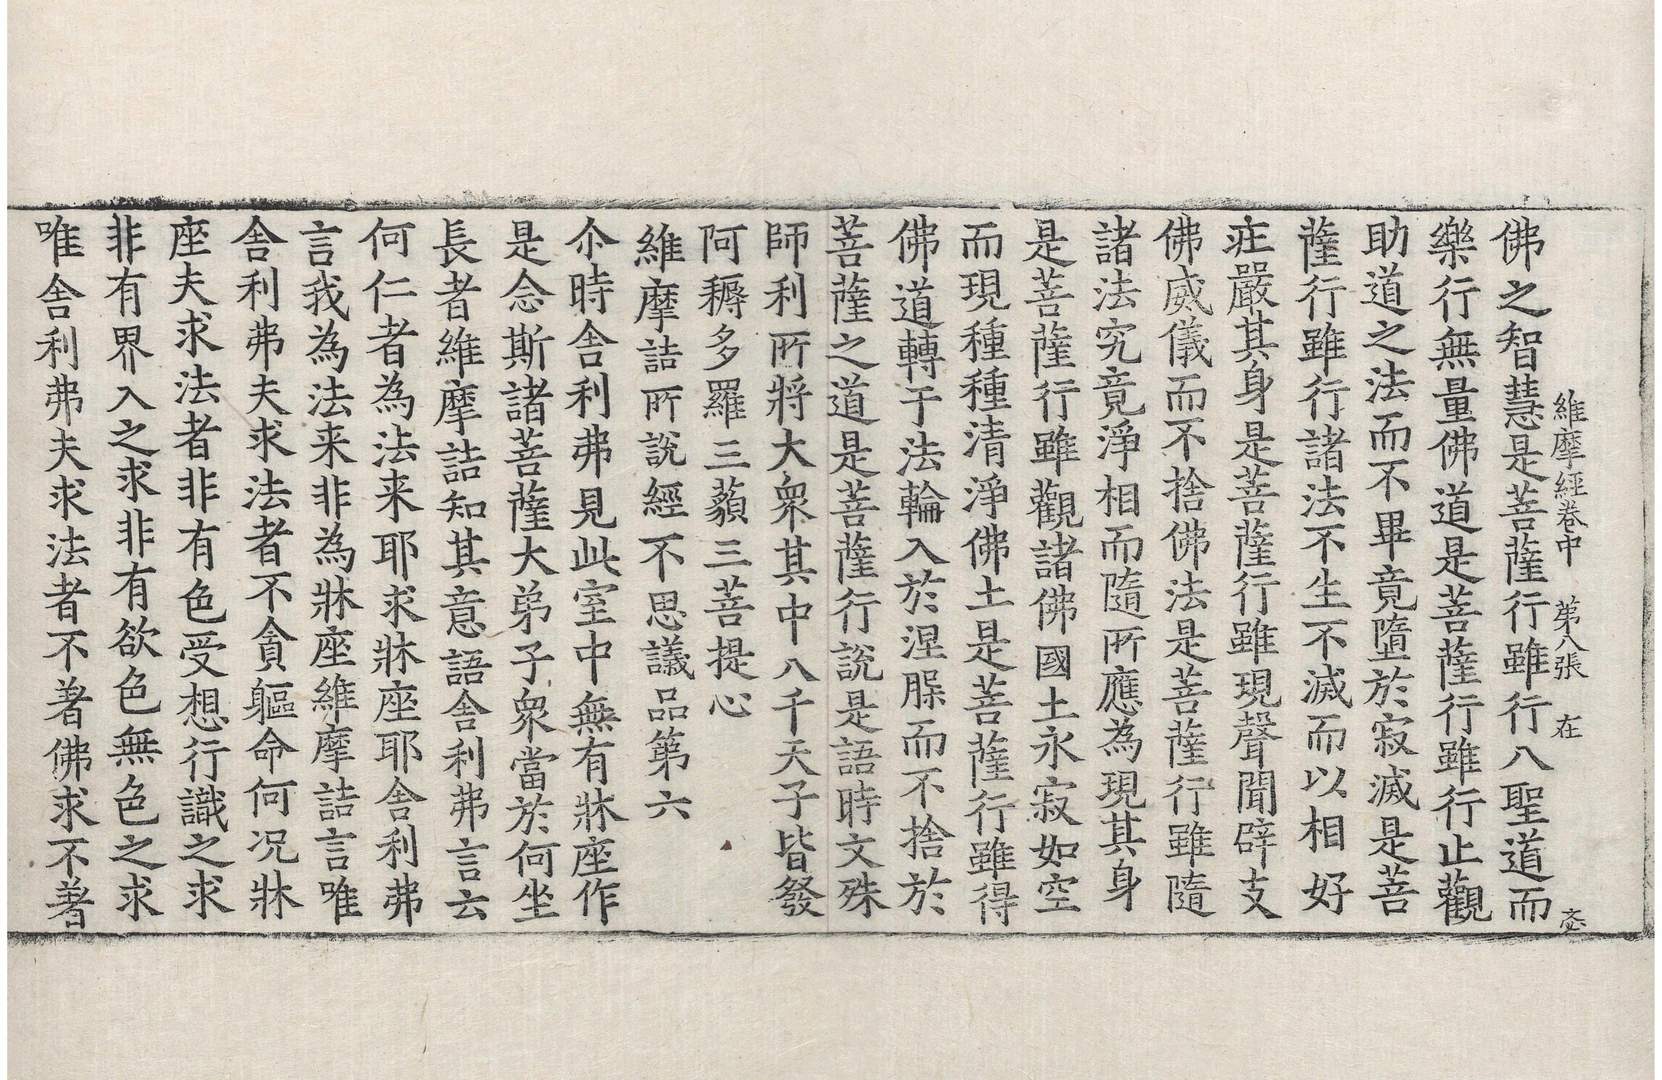 維摩經卷中 第八張 在
佛之智慧是菩薩行雖行八聖道而
樂行無量佛道是菩薩行雖行止觀
助道之法而不畢竟墮於寂滅是菩
薩行雖行諸法不生不滅而以相好
莊嚴其身是菩薩行雖現聲聞辟支
佛威儀而不捨佛法是菩薩行雖隨
諸法究竟淨相而隨所應為現其身
是菩薩行雖觀諸佛國土永寂如空
而現種種清淨佛土是菩薩行雖得
佛道轉于法輪入於涅槃而不捨於
菩薩之道是菩薩行說是語時文殊
師利所將大衆其中八千天子皆發
阿耨多羅三藐三菩提心
維摩詰所說經不思議品第六
尒時舍利弗見此室中無有牀座作
是念斯諸菩薩大弟子衆當於何坐
長者維摩詰知其意語舍利弗言云
何仁者為法来耶求牀座耶舍利弗
言我為法来非為牀座維摩詰言唯
舍利弗夫求法者不貪軀命何況牀
座夫求法者非有色受想行識之求
非有界入之求非有欲色無色之求
唯舍利弗夫求法者不著佛求不著